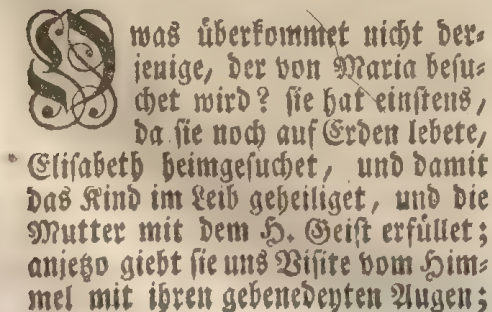 O was überkommet nicht der⸗
jenige, der von Maria besu⸗
chet wird? sie hat einstens,
da sie noch auf Erden lebete,
Elisabeth heimgesuchet, und damit
das Kind im Leib geheiliget, und die
Mutter mit dem H. Geist erfüllet;
anjetzo giebt sie uns Visite vom Him⸗
mel mit ihren gebenedeyten Augen;